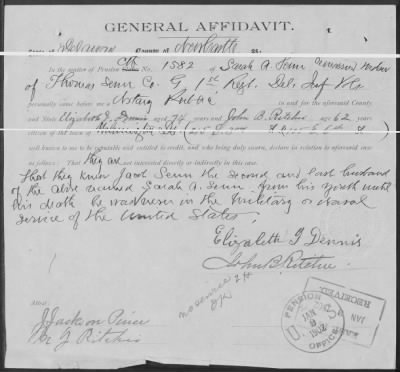 GENERAL AFFIDAVIT.
State of Delaware County of Newcastle ss:
In the matter of Pension No. 1582 of Sarah A. Senn widow
of Thomas Senn Co. G 1st Regt. Del. Inf Vols
personally came before me a Notary Public in and for the aforesaid County
and State Elizabeth J. Dennis aged 74 years and John B. Ritchie age 62 years
citizens of the town of Wilmington
well known to me to be reputable and entitled to credit, and who being duly sworn, declare in relation to aforesaid
case as follows: That they are not interested directly or indirectly in this case.
That they knew Jacob Senn the second and last husband
of the above named Sarah A. Senn from his youth until
his death he was never in the military or naval
service of the United States.
Elizabeth J Dennis
John B. Ritchie
no service
OK
Attest:
J Jackson Peirce
J Ritchie
U.S. PENSION OFFICE
JAN
1902
RECEIVED
JAN